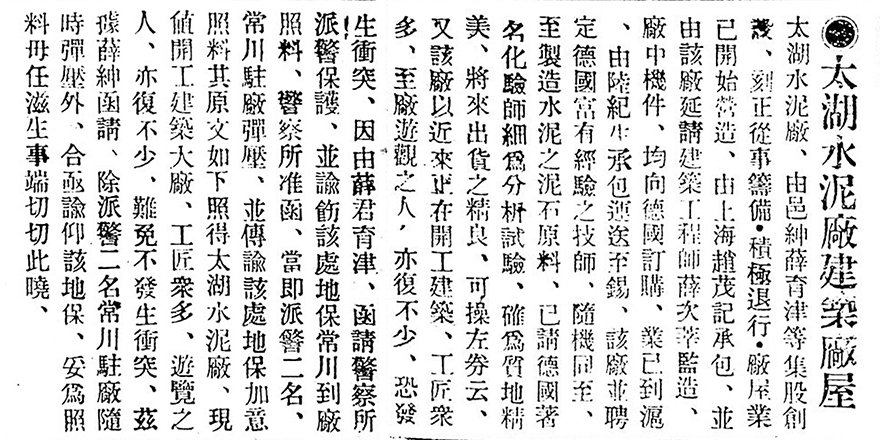 太湖水泥廠建築廠屋
太湖水泥廠、由邑紳薛育津等集股創
設、刻正從事籌備·積極進行·廠屋業
已開始營造、由上海趙茂記承包、並
由該廠延請建築工程師薛次莘監造、
廠中機件、均向德國訂購、業已到滬
、由陸紀生承包運送至錫、該廠並聘
定德國富有經驗之技師、隨機同至、
至製造水泥之泥石原料、已請德國著
名化驗師細爲分析試驗、確爲質地精
美、將來出貨之精良、可操左劵云、
又該廠以近來正在開工建築、工匠衆
多、至廠遊觀之人、亦復不少、恐發
生衝突、因由薛君育津、函請警察所
派警保護、並諭飭該處地保常川到廠
照料、警察所准函、當即派警二名、
常川駐廠彈壓、並傳諭該處地保加意
照料其原文如下照得太湖水泥廠、現
値開工建築大廠、工匠衆多、遊覽之
人、亦復不少、難免不發生衝突、茲
據薛紳函請、除派警二名常川駐廠隨
時彈壓外、合亟諭仰該地保、妥爲照
料毋任滋生事端切切此曉、